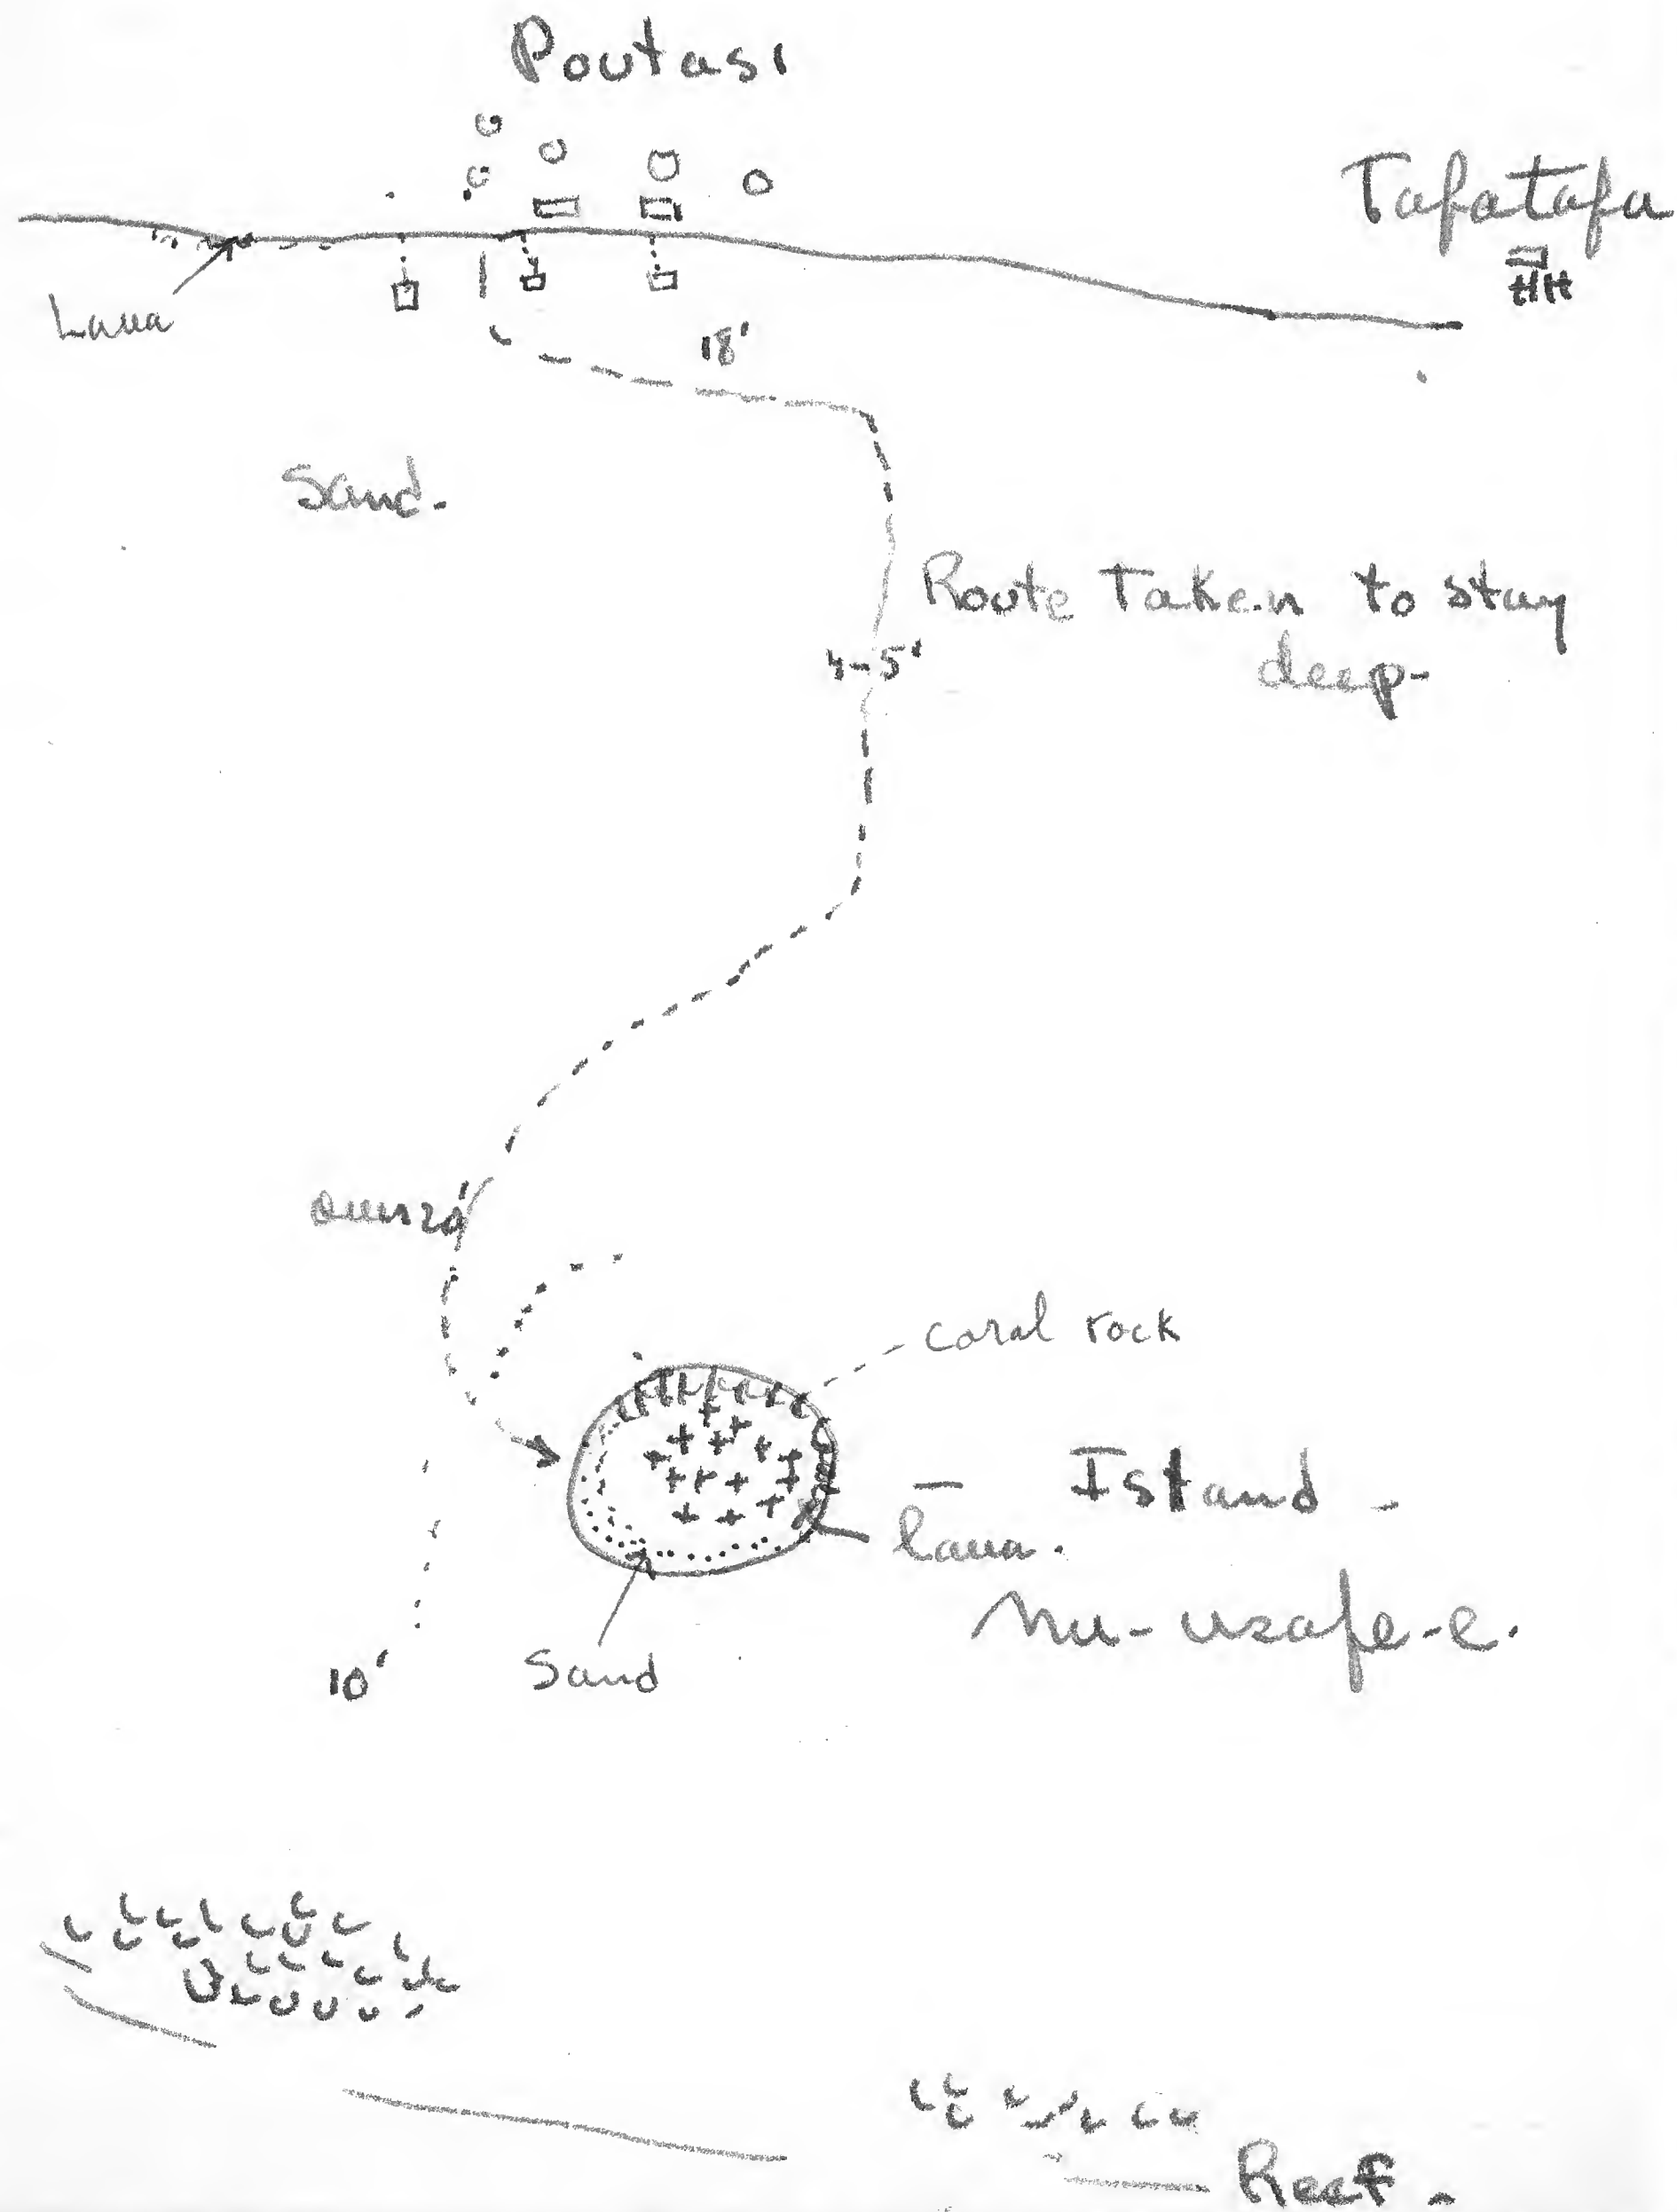 Poutasi
Tafatafa
Lava
18'
Sand.
Route Taken to stay
deep-
4-5'
over 20'
coral rock
— Island -
lava.
Nu-usafe-e.
Sand
10'
Reef -